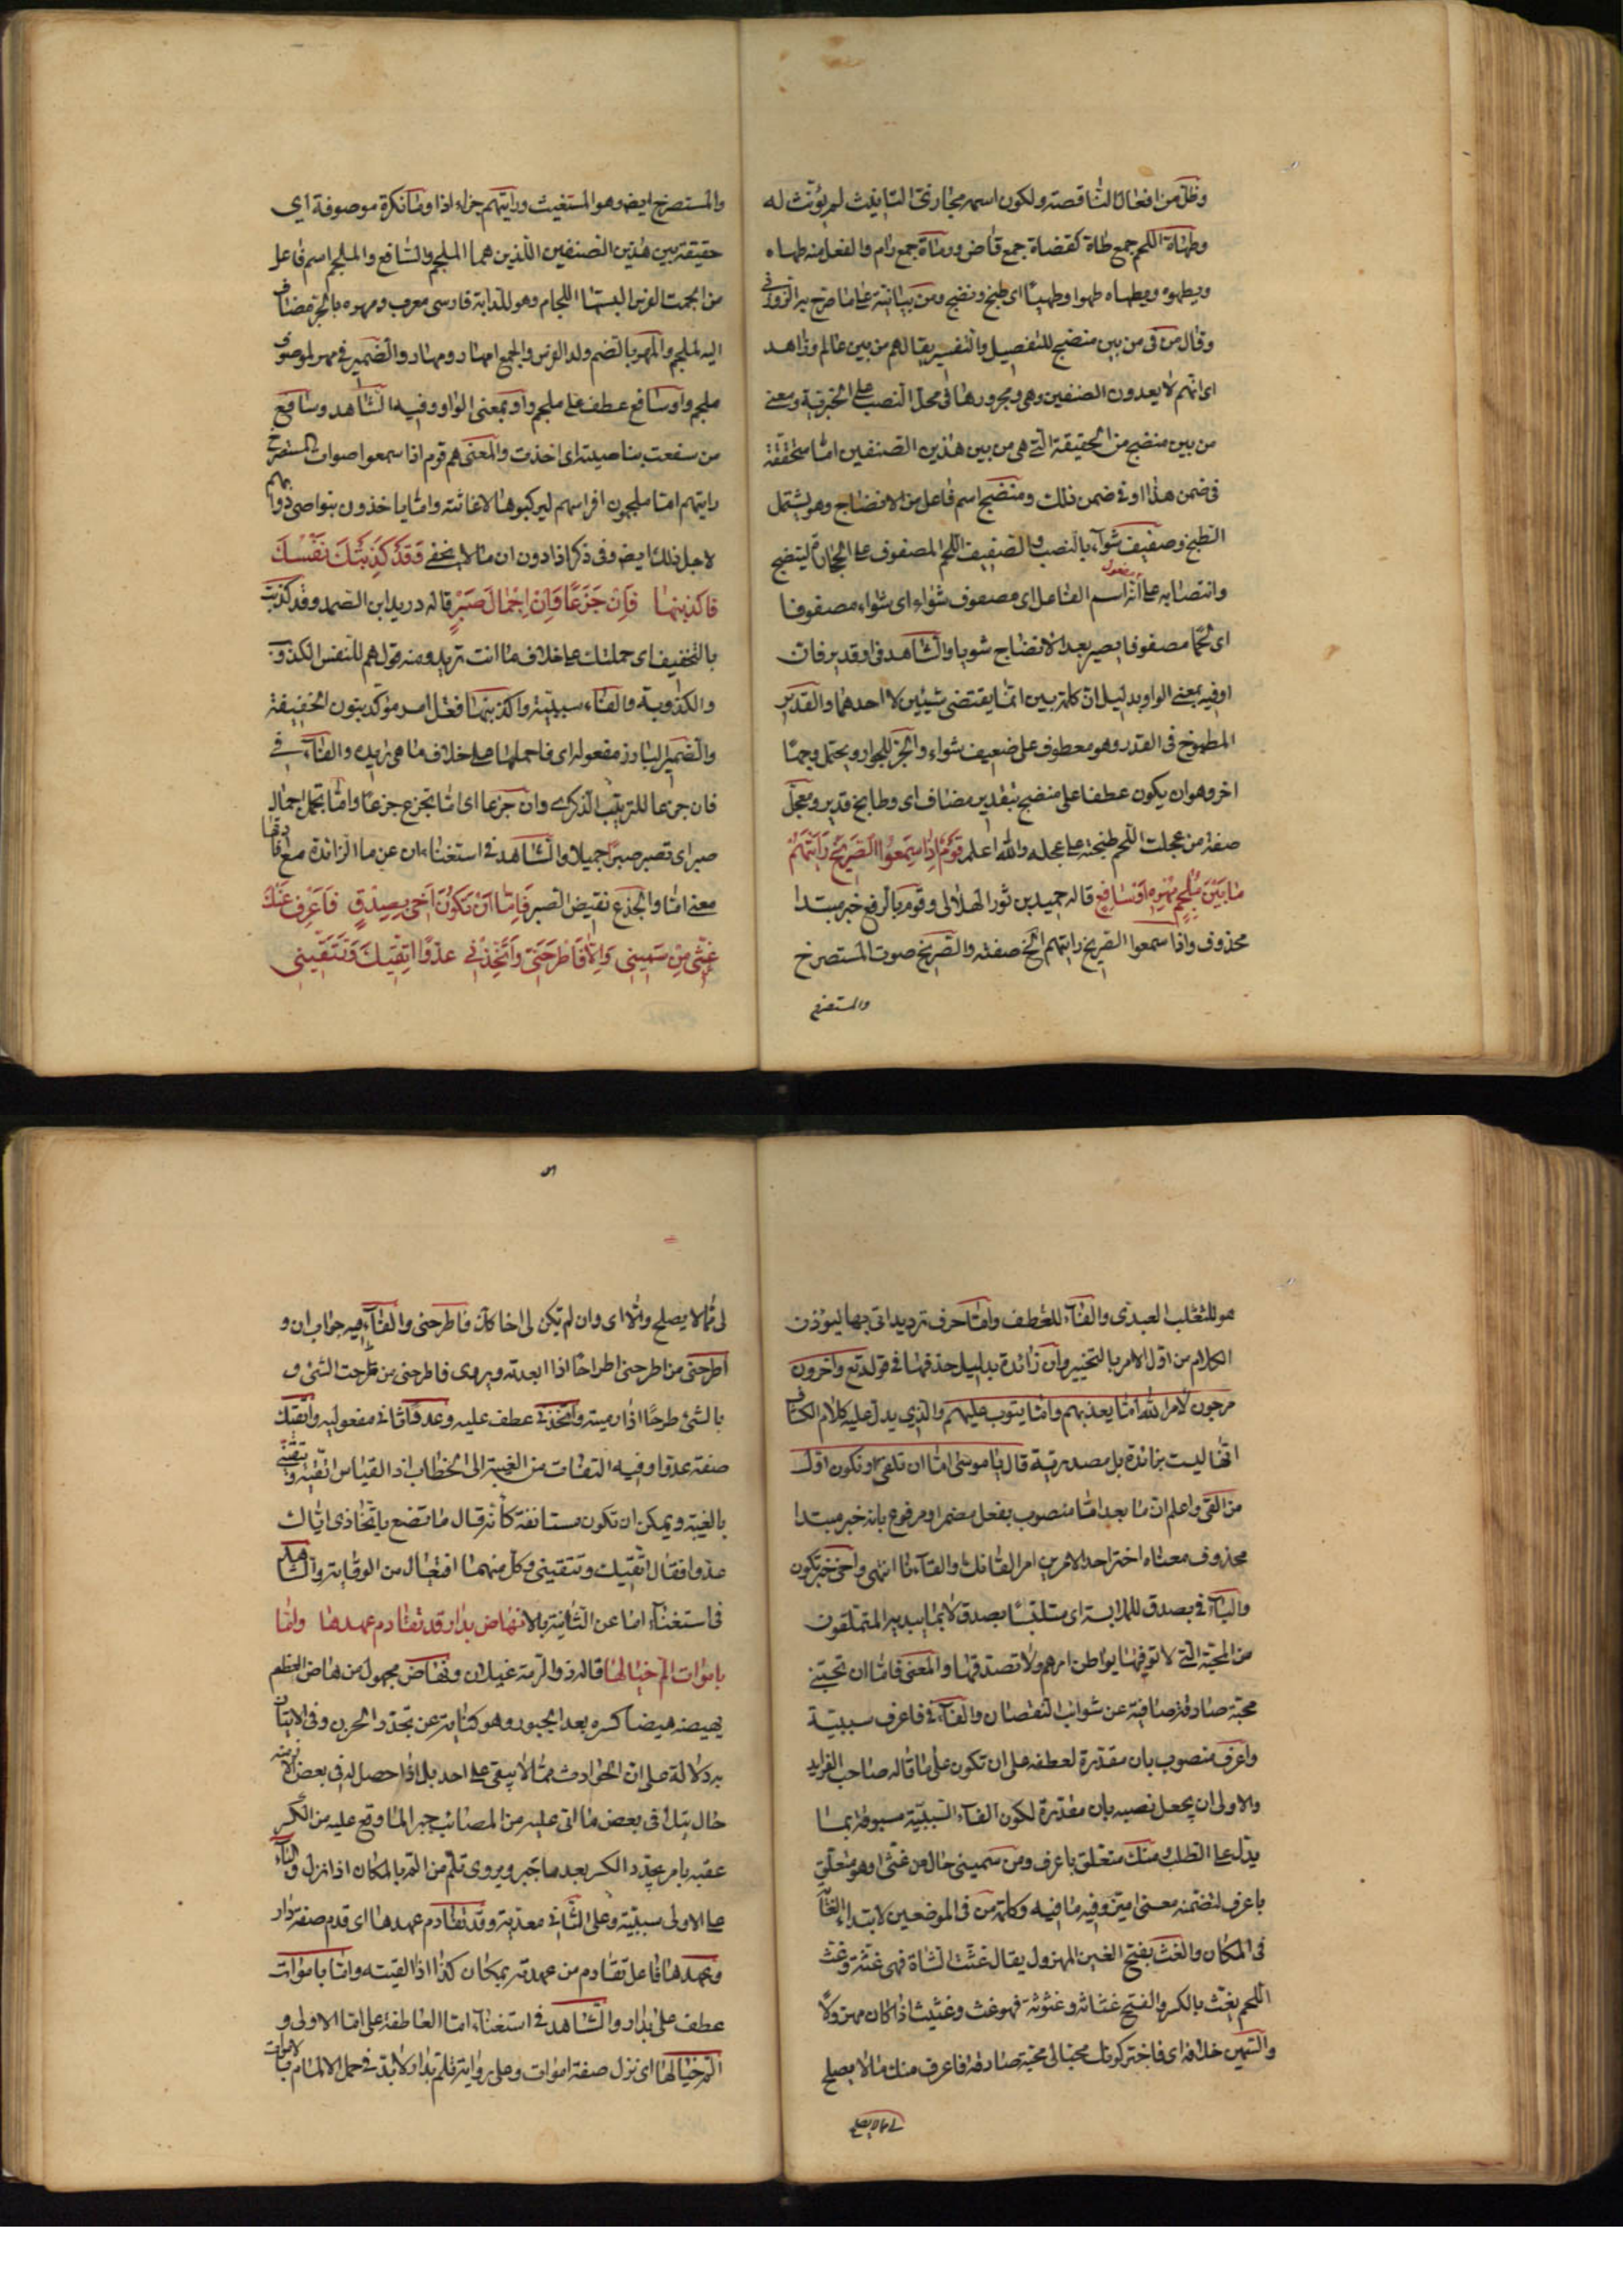 وظل من افعال الناقصة ولكون اسمه مجازی التانيث لم يؤنث له
وطهاة اللحم جمع طاه كقضاة جمع قاض ورماة جمع رام والفعل منه طهاه
ويطهوه ويطهاه طهوا وطهيا اى طبخ ونضج ومن بيانية على ما صرح به الزوزنى
وقال من فى من بين منضج للتفصيل والتفسير يقال هم من بين عالم وزاهد
اى انهم لا يعدون الصنفين وهى ومجرورها فى محل النصب على الخبرية ومعنى
من بين منضج من الحقيقة التى هى من بين هذين الصنفين اما متحققة
فى ضمن هذا او فى ضمن ذلك ومنضج اسم فاعل من الانضاج وهو يشتمل
الطبخ وصفيف شواء بالنصب والصفيف اللحم المصفوف على الجمار لينضج
وانتصابه على انه اسم الفاعل مفعول اى مصفوف شواء اى شواء مصفوفا
اى لحما مصفوفا يصير بعد الانضاج شويا والشاهد فى او قدير فان
او فيه بمعنى الواو بدليل ان كلمة بين انما يقتضى شيئين لا احدهما والقدير
المطبوخ فى القدر وهو معطوف على ضعيف شواء والجر للجوار ويحتمل وجها
اخر وهو ان يكون عطفا على منضج بتقدير مضاف اى وطابخ قدير ومعجل
صفة من عجلت اللحم طبخته على عجلة والله اعلم قَوْمٌ اِذَا سَمِعُوا الصَّرِيْخَ رَاَيْتَهُمْ
مَا بَيْنَ مُلْجِمِ مُهْرِهِ اَوْ سَافِعٍ قاله حميد بن ثور الهلالى وقوم بالرفع خبر مبتدا
محذوف واذا سمعوا الصريخ رايتهم الخ صفته والصريخ صوت المستصرخ
والمستصرخ
والمستصرخ ايضا وهو المستغيث ورايتهم جزاء اذا وما نكرة موصوفة اى
حقيقة بين هذين الصنفين اللذين هما الملجم والسافع والملجم اسم فاعل
من الجمت الفرس البستها اللجام وهو للدابة فارسى معرب ومهره بالجر مضاف
اليه لملجم والمهر بالضم ولد الفرس والجمع امهار ومهار والضمير فى مهره لموصوف
ملجم واو سافع عطف على ملجم واو بمعنى الواو وفيه الشاهد وسافع
من سفعت بناصيته اى اخذت والمعنى هم قوم اذا سمعوا صوات المستصرخ
رايتهم اما ملجمون افراسهم ليركبوها لاغاثته واما ياخذون بنواصى دوابهم
لاجل ذلك ايضا وفى ذكر اذا دون ان ما لا يخفى فَقَدْ كَذَبَتْكَ نَفْسُكَ
فاكذبنها فَاِنْ جَزَعًا وَاِنْ اِجْمَالَ صَبْرٍ قاله دريد ابن الصمه وقد كذبت
بالتخفيف اى حملتك على خلاف ما انت تريد ومنه قولهم للنفس الكذوب
والكذوبة والفاء سببية واكذبنها فعل امر مؤكد بنون الخفيفة
والضمير البارز مفعوله اى فاحملها على خلاف ما هى تريده والفاء فى
فان جزعا للترتيب الذكرى وان جزعا اى اما تجزع جزعا واما تجمل اجمال
صبر اى تصبر صبرا جميلا والشاهد فى استغناء ان عن ما الزائدة مع افادتها
معنى اما والجزع نقيض الصبر فَاِمَّا اَنْ تَكُوْنَ اَخِى بِصِدْقٍ فَاَعْرِفَ مِنْكَ
غَثِّى مِنْ سَمِيْنِى وَاِلَّا فَاطَّرِحْنِى وَاتَّخِذْنِى عَدُوًّا اَتَّقِيْكَ وَتَتَّقِيْنِى
هو للثعلب العبدى والفاء للعطف واما حرف ترديد اتى بها ليؤذن
الكلام من اول الامر بالتخيير وان زائدة بدليل حذفها فى قوله تع وآخرون
مرجون لامر الله اما يعذبهم واما يتوب عليهم والذى يدل عليه كلام الكشاف
انها ليست بزائدة بل مصدرية قال يا موسى اما ان تلقى او نكون اول
من القى واعلم ان ما بعد اما منصوب بفعل مضمر او مرفوع بانه خبر مبتدا
محذوف معناه اختر احد الامرين امر القائك والقاءنا انتهى واخى خبر تكون
والباء فى بصدق للملابسة اى متلبسا بصدق لا بما يبديه المتملقون
من المحبة التى لا توفيها بواطن امرهم ولا تصدقها والمعنى فاما ان تحبنى
محبة صادقة صافية عن شوائب النقصان والفاء فى فاعرف سببية
واعرف منصوب بان مقدرة لعطفه على ان تكون على ما قاله صاحب الفرايد
والاولى ان يجعل نصبه بان مقدرة لكون الفاء السببية مسبوقة بما
يدل على الطلب ومنك متعلق باعرف ومن سمينى حال من غثى او هو متعلق
باعرف لتضمنه معنى اميز وفيه ما فيه وكلمة من فى الموضعين لابتداء الغاية
فى المكان والغث بفتح الغين المهزول يقال غثت الشاة فهى غثة وغث
اللحم يغث بالكسر والفتح غثاثة وغثوثة فهو غث وغثيث اذا كان مهزولا
والسمين خلافه اى فاختر كونك محبا لى محبة صادقة فاعرف منك ما لا يصلح
لى مما لا يصلح
لى مما لا يصلح والا اى وان لم تكن لى اخا كان فاطرحنى والفاء فيه جواب ان و
اطرحنى من اطرحنى اطراحا اذا ابعدته ويروى فاطرحنى من طرحت الشئ و
بالشئ طرحا اذا رميته واتخذنى عطف عليه وعدوا ثانى مفعوليه واتقيك
صفة عدوا وفيه التفات من الغيبة الى الخطاب اذ القياس اتقيه ويتقينى
بالغيبة ويمكن ان تكون مستانفة كانه قال ما تصنع باتخاذى اياك
عدوا فقال اتقيك وتتقينى وكل منهما افتعال من الوقاية والشاهد
فى استغناء اما عن الثانية بالا تهاض بدار قد تقادم عهدها واما
باموات الم خيالها قاله ذو الرمة غيلان وتهاض مجهول من هاض العظم
يهيضه هيضا كسره بعد الجبور وهو كناية عن تجدد الحزن وفى الاتيان
به دلالة على ان الحوادث مما لا يبقى على احد بل اذا حصل له فى بعض الازمنة
حال يتلافى بعض ما اتى عليه من المصائب جبرا لما وقع عليه من الكسر
عقبه بامر يجدد الكسر بعد ما جبر ويروى تلم من الم بالمكان اذا نزل والباء
على الاولى سببية وعلى الثانى معدية وقد تقادم عهدها اى قدم صفة دار
وعهدها فاعل تقادم من عهدته بمكان كذا اذا لقيته واما باموات
عطف على بدار والشاهد فى استغناء اما العاطفة على اما الاولى و
الم خيالها اى نزل صفة اموات وعلى رواية تلم بدار لا بد فى حمل الالمام بالاموات